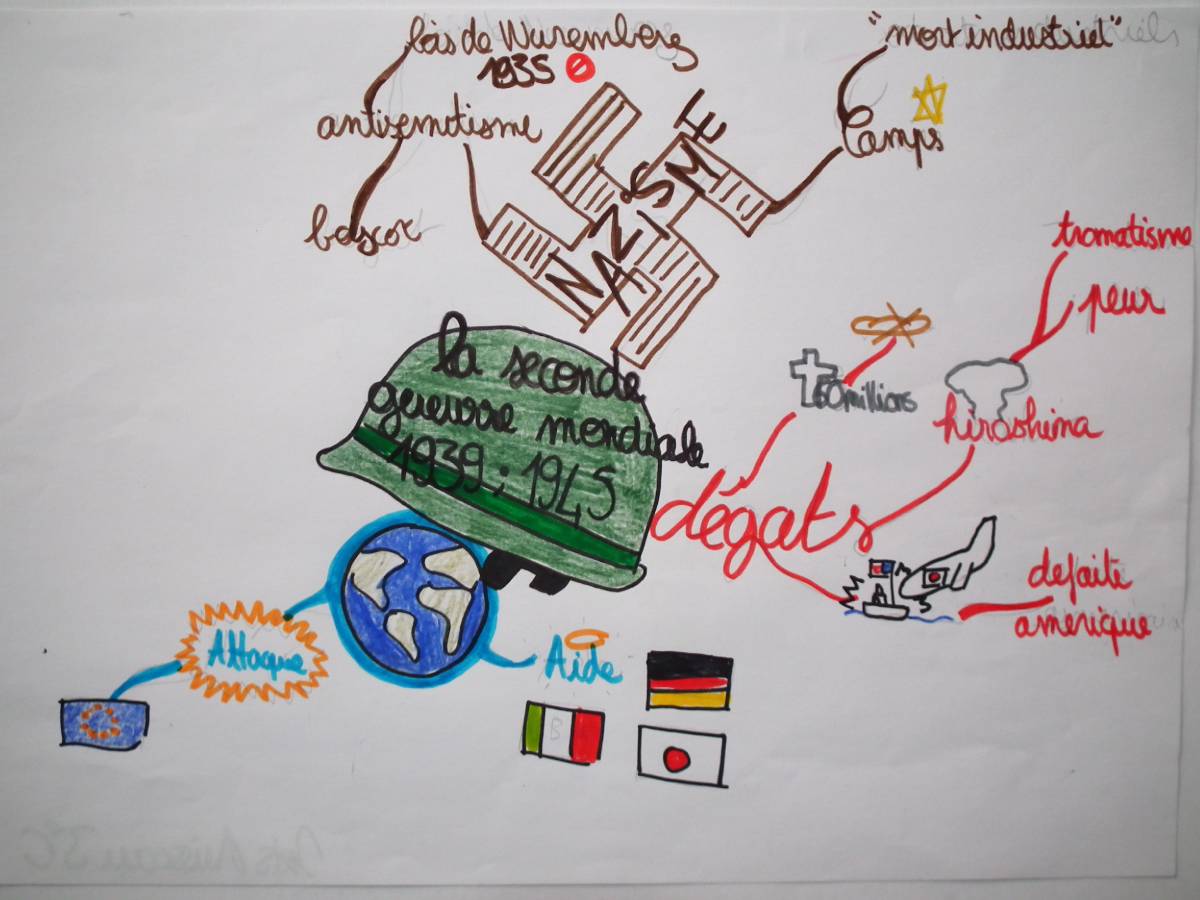 lois de Nuremberg
1935
antisemetisme
boycot
"mort industriel"
Camps
NAZISME
la seconde
guerre mondiale
1939 : 1945
tromatisme
peur
60 millions
hiroshima
dégats
defaite
amerique
Attaque
Aide